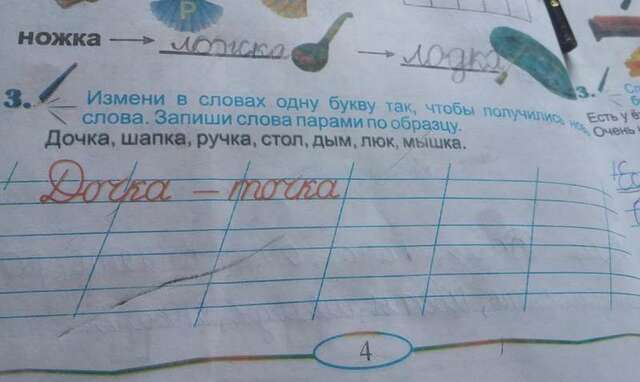 Р
ножка → ложка → лодка
3. Измени в словах одну букву так, чтобы получились новые
слова. Запиши слова парами по образцу.
Дочка, шапка, ручка, стол, дым, люк, мышка.
Дочка – точка
4
3.
Есть у
Очень